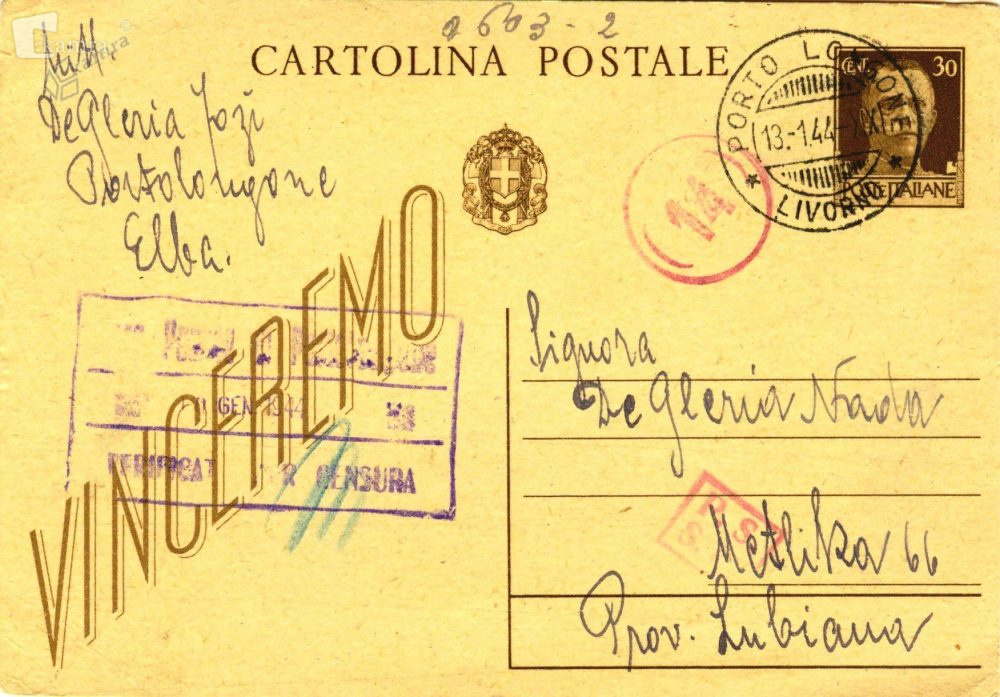 0603-2
CARTOLINA POSTALE
CENT. 30
POSTE ITALIANE
PORTO LONGONE
13.-1.44-XX
* LIVORNO *
De Gleria Jozi
Portolongone
Elba.
14
VINCEREMO
GEN. 1944
VERIFICAT PER CENSURA
Signora
De Gleria Nada
P S
S
Metlika 66
Prov. Lubiana